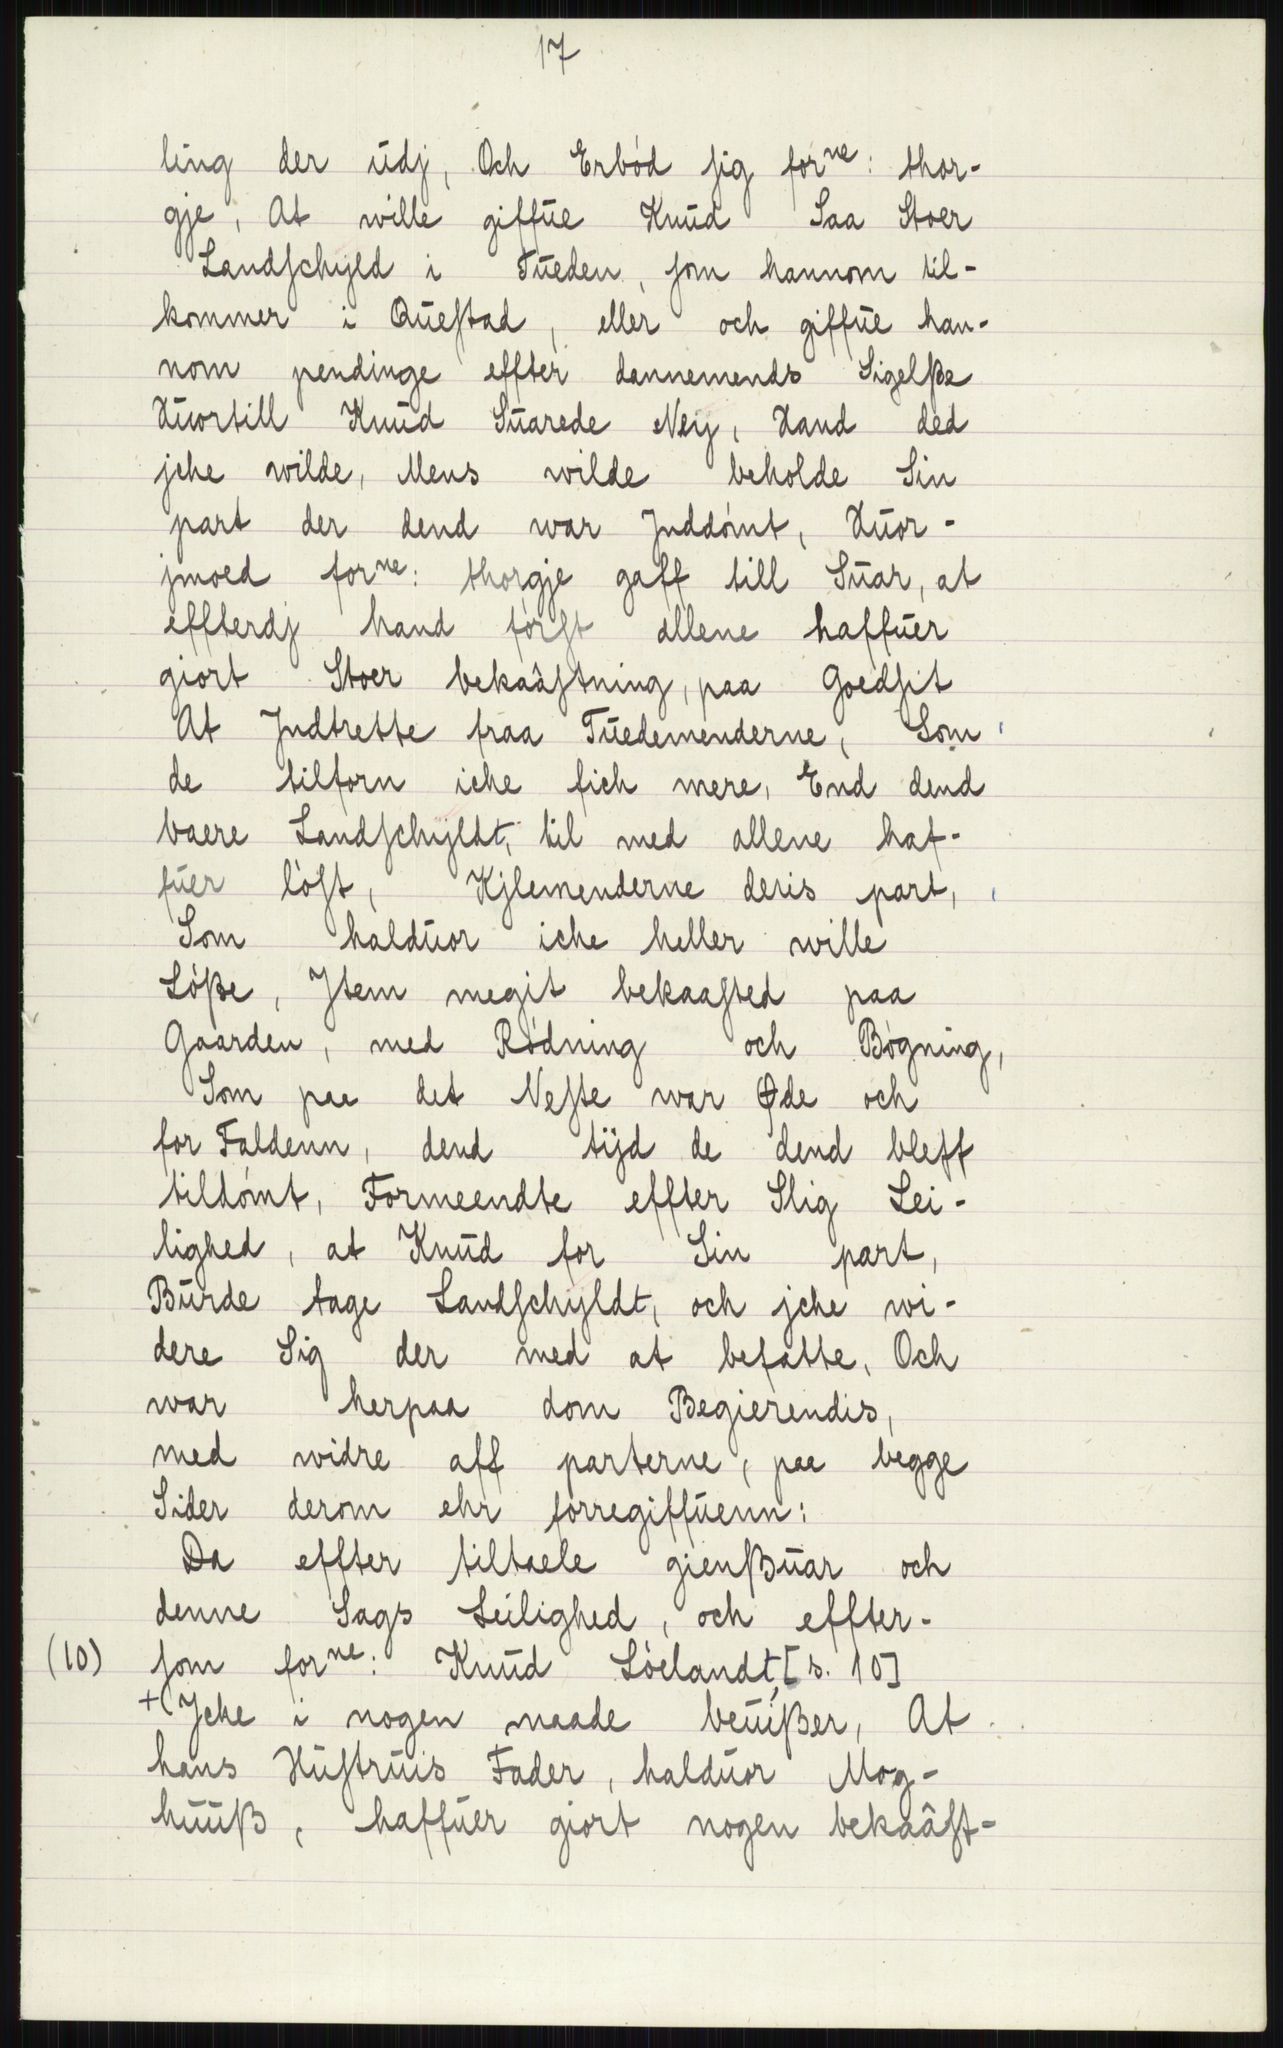 17
ling der ūdj, Och Erbód sig forne: thor-
gje, At wille giffūe Knūd Saa Stoer
Landschyld i Tūeden, som hannom til-
kommer i Qūestad, eller och giffūe han-
nom pendinge effter dannemends Sigelße
Hūortill Knūd Sūarede Neij, Hand ded
jche wilde, Mens wilde beholde Sin
part der dend war Jnddómt, Hūor-
jmoed forne: thorgje gaff till Sūar, at
effterdj hand fórst allene haffūer
giort Stoer bekaâstning, paa Goedsit
At Jndtrette fraa Tūedemenderne, Som
de tilforn iche fich mere, End dend
baere Landschyldt, til med allene haf-
fūer lóst, Kjlemenderne deris part,
Som haldūor iche heller wille
Lóße, Jtem megit bekaasted paa
Gaarden, medRódning och Bógning,
Som paa det Neste war Øde och
for Faldenn, dend tijd de dend bleff
tildómt, Formeendte effter Slig Lei-
lighed, at Knūd for Sin part,
Būrde tage Landschyldt, och jche wi-
dere Sig der med at befatte, Och
war herpaa dom Begierendis,
med widre aff parterne, paa begge
Sider derom ehr forregiffūenn:
Da effter tiltaele gienßūar och
denne Sags Leilighed, och effter-
(10) som forne: Knūd Lóelandt, [s. 10]
+(Jche i nogen maade beūißer, At
hans Hūstrūis Fader, haldūor Mog-
hūūß, haffūer giort nogen bekaâst-